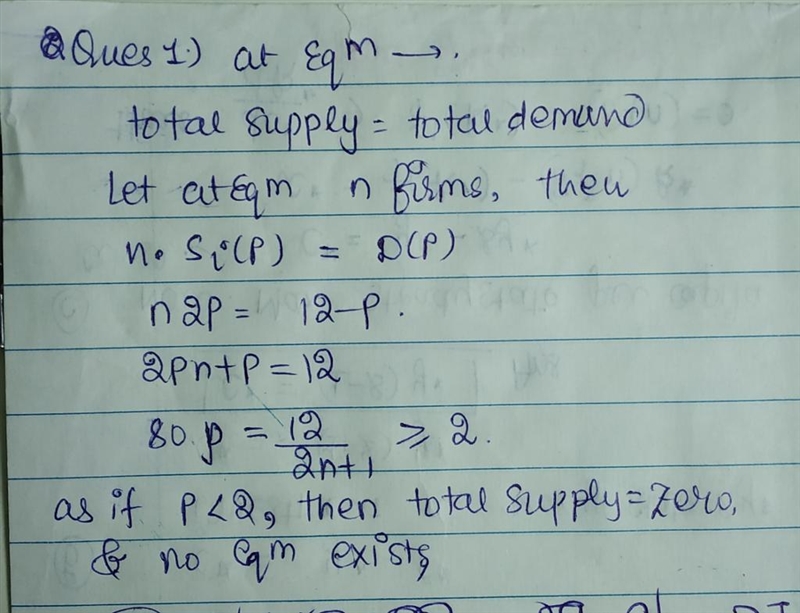 Ques 1.) at Eqm →.
total supply = total demand
Let at Eqm n firms, then
n. Si(P) = D(P)
n 2P = 12-P.
2Pn+P=12
so. p = 12/2n+1 ⩾ 2.
as if P<2, then total supply=zero,
& no Eqm exists